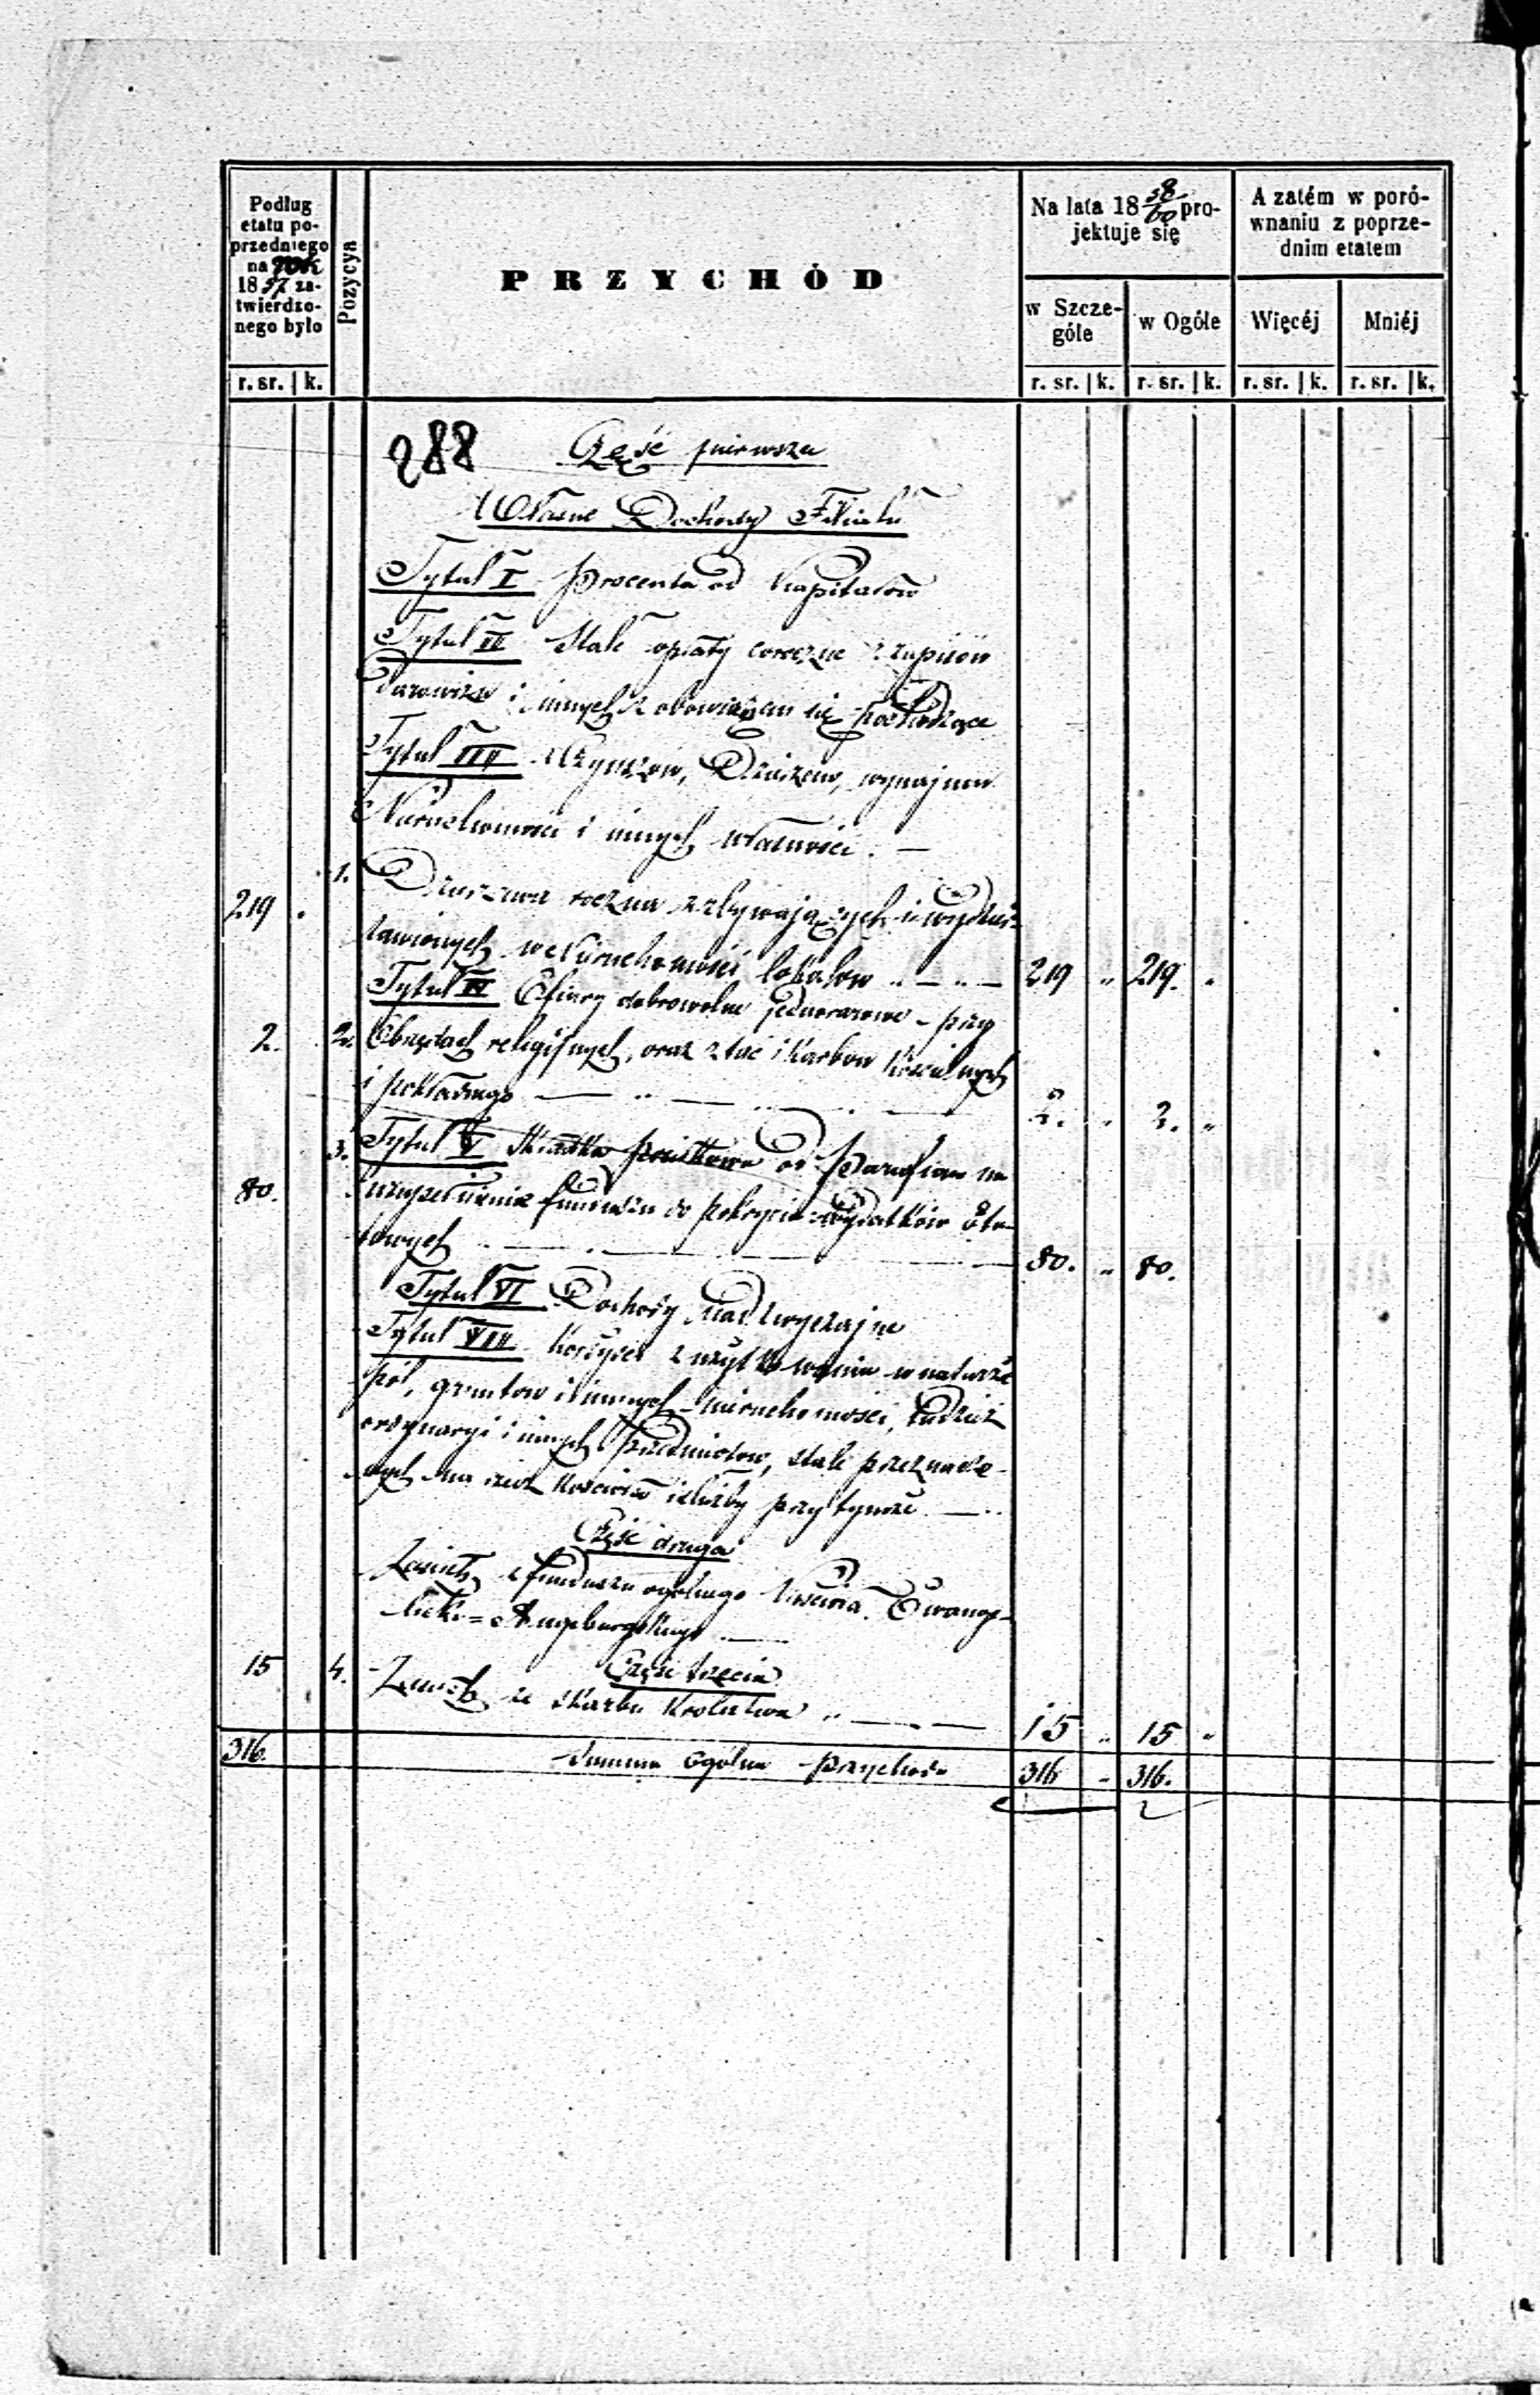 Podług
etatu po-
przedniego
na rok
1857 za-
twierdzo-
nego było
Pozycya
PRZYCHÓD
Na lata 18 58/60 pro-
jektuje się
A zatém w poró-
wnaniu z poprze-
dnim etatem
w Szcze-
góle
w Ogóle
Więcéj
Mniéj
r. sr. k. r. sr. k. r. sr. k. r. sr. k. r. sr. k.
288 Część pierwsza
Własne Dochody Filiału
Tytuł I Procenta od Kapitałów
Tytuł II Stałe opłaty coroczne z zapisów
Darowizn i innych zobowiązań się pochodzące
Tytuł III z Czynszów, Dzierżaw, wynajmu
Nieruchomości i innych własności. —
219 1. Dzierżawa roczna z zbywających i wydzier-
żawionych w Nieruchomości lokalów 219 " 219. "
Tytuł IV Ofiary dobrowolne jednorazowe - przy
2. 2. Obrzędach religijnych, oraz z tac i skarbon Kościelnych
i pokładnego 2. " 2. "
3. Tytuł V Składka od Parafian na
80. uzupełnienie funduszu do pokrycia wydatków Eta-
towych 80. " 80.
Tytuł VI Dochody Nadzwyczajne
Tytuł VII Korzyści z użytkowania w naturze
pól, gruntów i innych nieruchomości, tudzież
ordynaryi i innych przedmiotów, stale przeznaczo-
nych na rzecz Kościoła i służby przy tymże —
Część druga
Zasiłek z funduszu ogólnego Kościoła Ewange-
licko = Augsburgskiego —
Część trzecia
15 4. Zasiłek ze Skarbu Królestwa 15 " 15 "
316. Summa Ogólna przychodu 316 " 316.